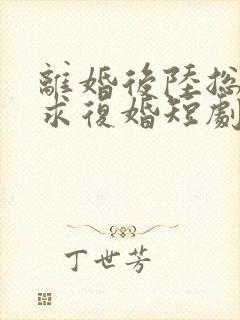 離婚後陸總
求復婚短劇
丁世芳